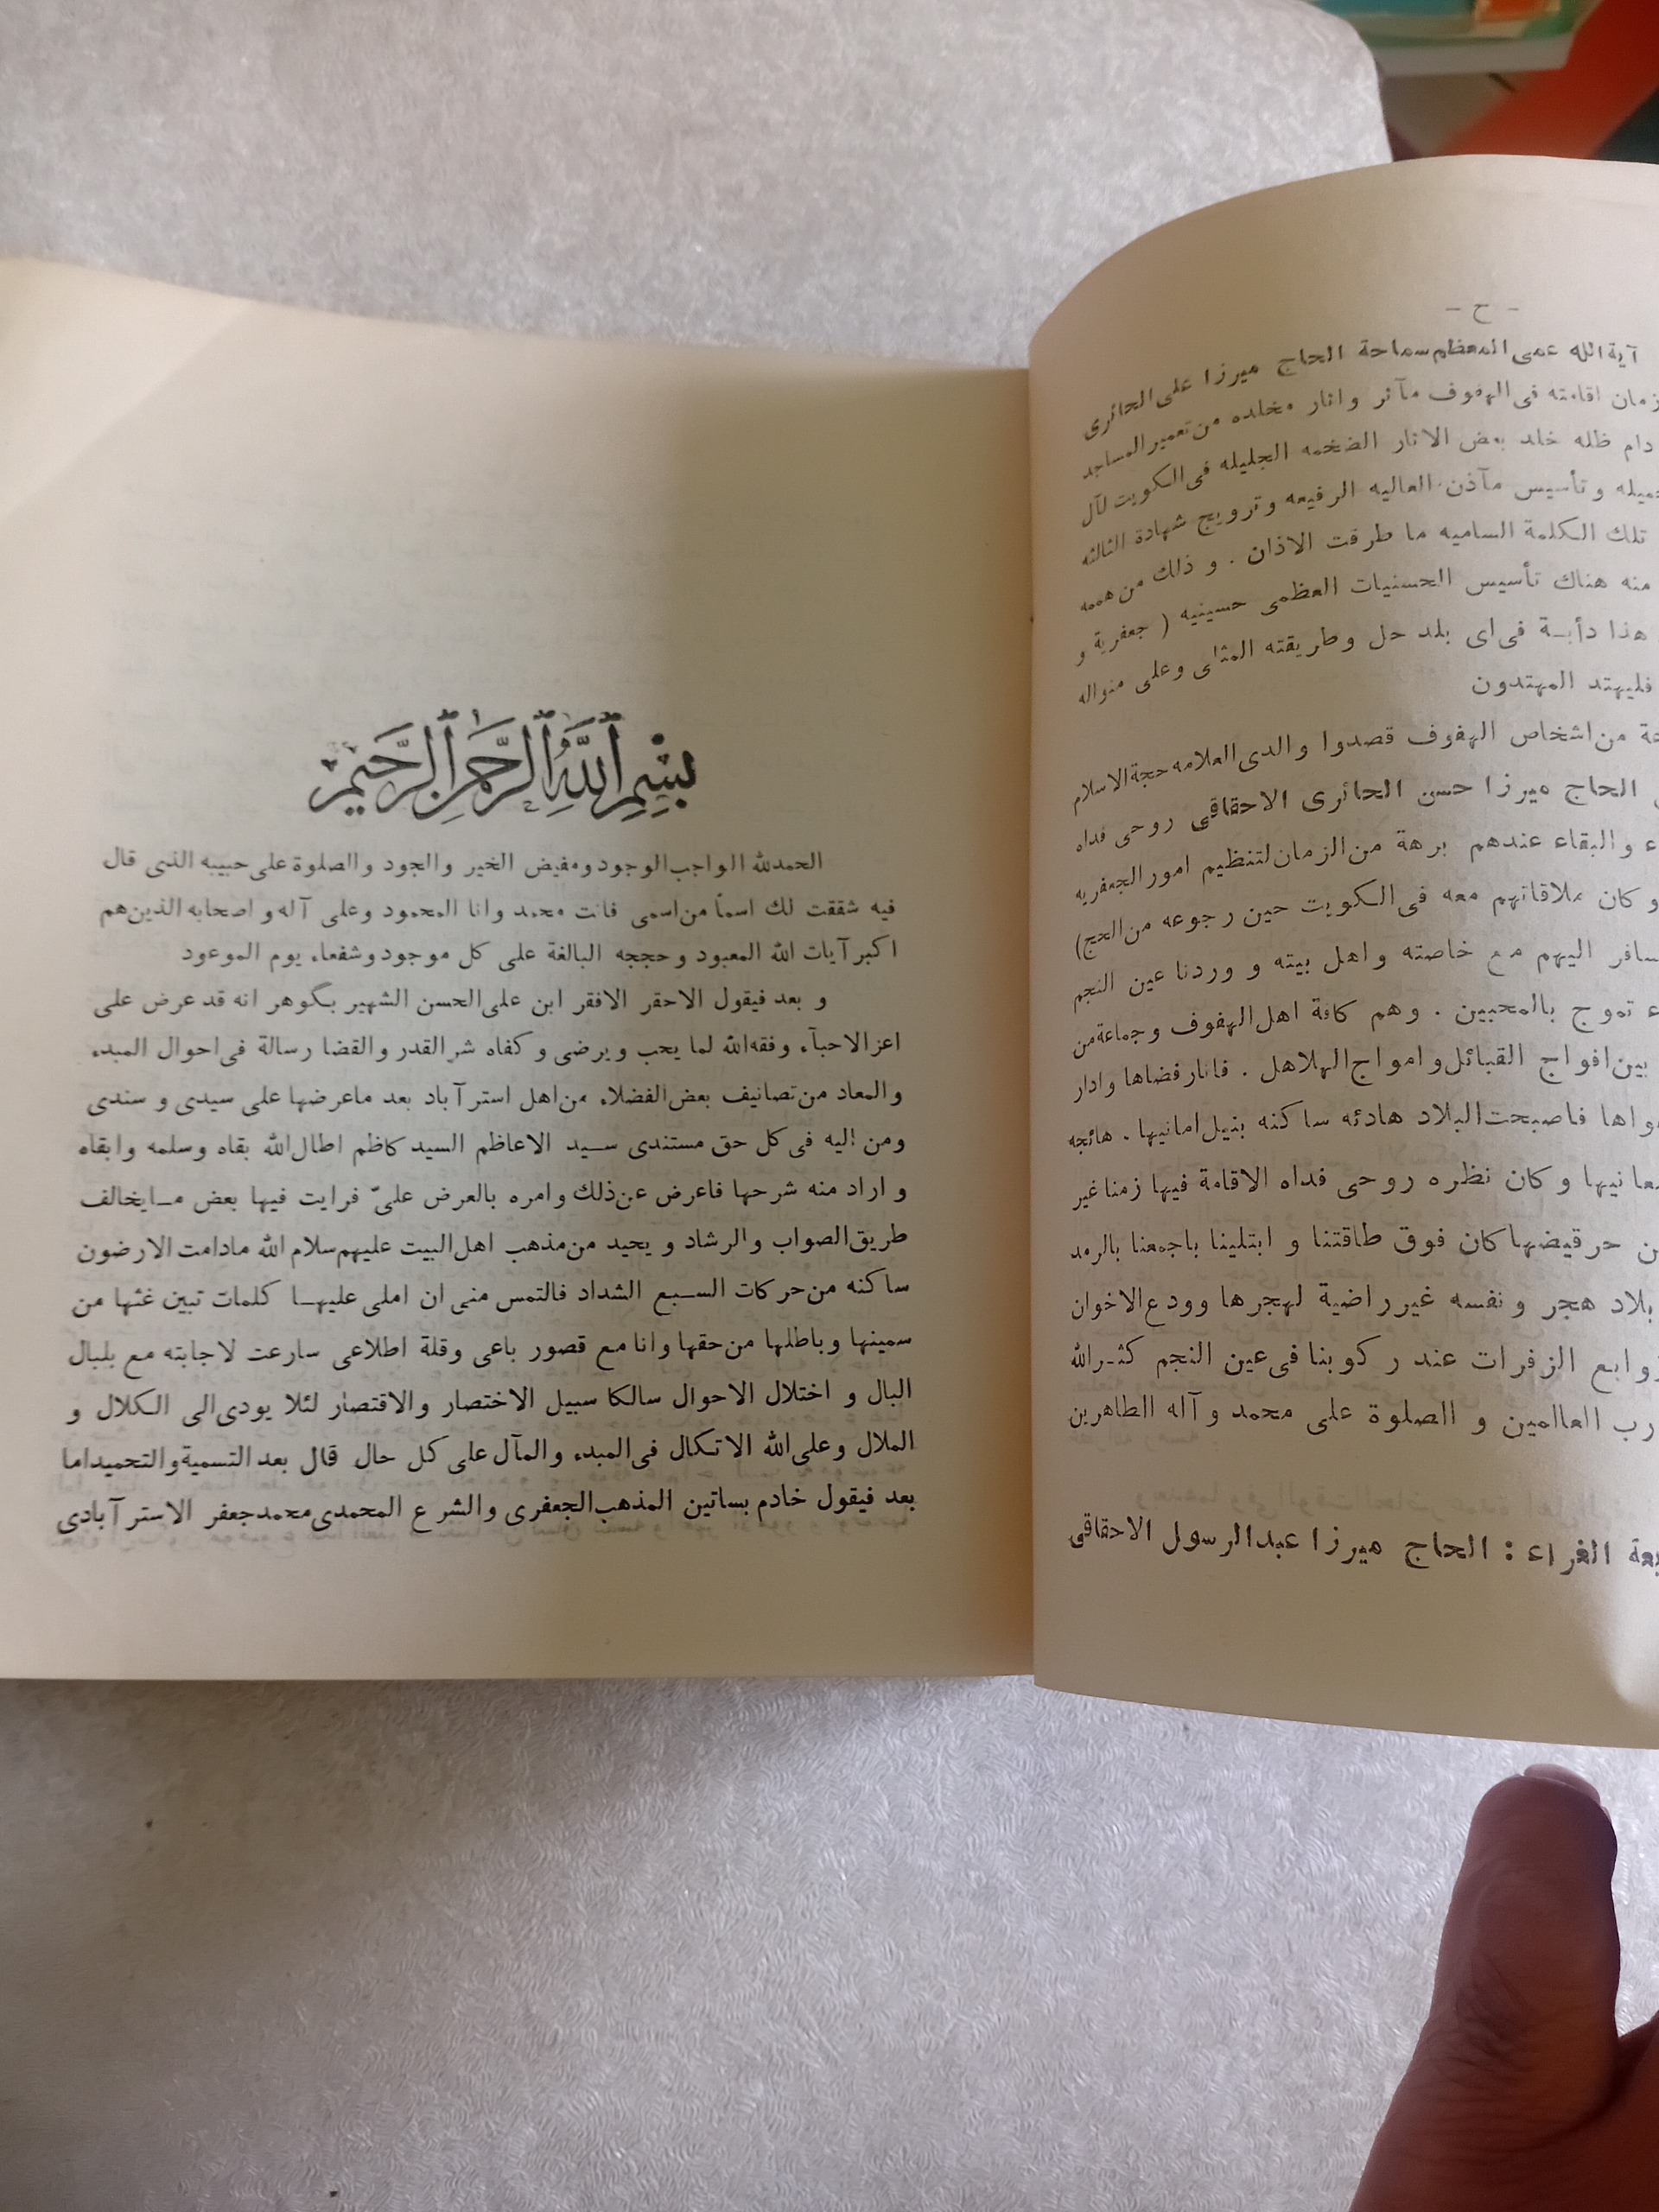 - ح -
آية الله عمى المعظم سماحة الحاج ميرزا على الحائرى
زمان اقامته فى الهفوف مآثر و اثار مخلده من تعمير المساجد
دام ظله خلد بعض الاثار الضخمه الجليله فى الكويت لآل
و تأسيس مآذن العاليه الرفيعه و ترويج شهادة الثالثه
تلك الكلمة الساميه ما طرفت الاذان . و ذلك من هممه
منه هناك تأسيس الحسنيات العظمى حسينيه ( جعفرية و
هذا دأبـة فى اى بلد حل و طريقته المثلى و على منواله
فليهتد المهتدون
من اشخاص الهفوف قصدوا والدى العلامه حجة الاسلام
الحاج ميرزا حسن الحائرى الاحقاقى روحى فداه
و البقاء عندهم برهة من الزمان لتنظيم امور الجعفريه
و كان ملاقاتهم معه فى الكويت حين رجوعه من الحج)
اليهم مع خاصته و اهل بيته و وردنا عين النجم
تموج بالمحبين . وهم كافة اهل الهفوف و جماعة من
بين افواج القبائل و امواج الهلاهل . فانار فضاها و ادار
فاصبحت البلاد هادئه ساكنه بنيل امانيها . هائجه
و كان نظره روحى فداه الاقامة فيها زمنا غير
حر قيضها كان فوق طاقتنا و ابتلينا باجمعنا بالرمد
بلاد هجر و نفسه غير راضية لهجرها وودع الاخوان
الزفرات عند ركوبنا فى عين النجم كثـر الله
رب العاالمين و الصلوة على محمد و آله الطاهرين
الغراء : الحاج ميرزا عبدالرسول الاحقاقى
بِسْمِ اللَّهِ الرَّحْمٰنِ الرَّحِيمِ
الحمدلله الواجب الوجود و مفيض الخير والجود والصلوة على حبيبه النبى قال
فيه شققت لك اسماً من اسمى فانت محمد وانا المحمود وعلى آله و اصحابه الذين هم
اكبر آيات الله المعبود و حججه البالغة على كل موجود و شفعاء يوم الموعود
و بعد فيقول الاحقر الافقر ابن على الحسن الشهير بگوهر انه قد عرض على
اعز الاحبآء وفقه الله لما يحب و يرضى و كفاه شر القدر والقضا رسالة فى احوال المبدء
والمعاد من تصانيف بعض الفضلاء من اهل استر آباد بعد ماعرضها على سيدى و سندى
ومن اليه فى كل حق مستندى سـيد الاعاظم السيد كاظم اطال الله بقاه وسلمه وابقاه
و اراد منه شرحها فاعرض عن ذلك وامره بالعرض علىّ فرايت فيها بعض مـايخالف
طريق الصواب والرشاد و يحيد من مذهب اهل البيت عليهم سلام الله مادامت الارضون
ساكنه من حركات السـبع الشداد فالتمس منى ان املى عليهـا كلمات تبين غثها من
سمينها وباطلها من حقها وانا مع قصور باعى وقلة اطلاعى سارعت لاجابته مع بلبال
البال و اختلال الاحوال سالكا سبيل الاختصار والاقتصار لئلا يودى الى الكلال و
الملال وعلى الله الاتكال فى المبدء والمآل على كل حال قال بعد التسمية والتحميد اما
بعد فيقول خادم بساتين المذهب الجعفرى والشرع المحمدى محمد جعفر الاستر آبادى